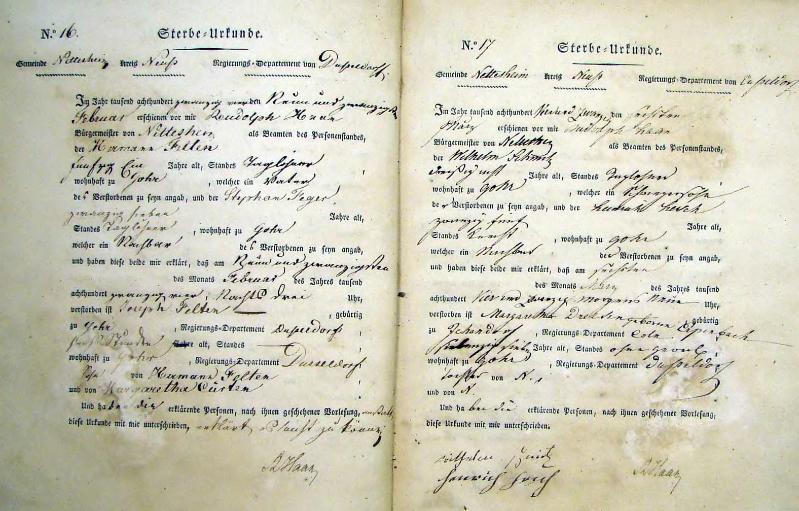 N.º 16.
Sterbe-Urkunde.
Gemeinde Nettesheim Kreis Neuß Regierungs-Departement von Dusseldorf
Im Jahr tausend achthundert zwanzig vier den Neun und zwanzigsten
Februar erschienen vor Rudolph Haan
Bürgermeister von Nettesheim als Beamten des Personenstandes,
der Hamann Felten
fünfzig Ein Jahre alt, Standes Taglöhner
wohnhaft zu Gohr, welcher ein Vater
des Verstorbenen zu seyn angab, und der Stephan Jeger
zwanzig sieben Jahre alt,
Standes Taglöhner, wohnhaft zu Gohr
welcher ein Nachbar des Verstorbenen zu seyn angab,
und haben diese beide mir erklärt, daß am Neun und zwanzigsten
des Monats Februar des Jahrs tausend
achthundert zwanzig vier, Nachts drei Uhr,
verstorben ist Joseph Felten gebürtig
zu Gohr, Regierungs-Departement Dusseldorf
Stunden alt, Standes
wohnhaft zu Gohr, Regierungs-Departement Dusseldorf
Sohn von Hamann Felten
und von Margaretha Cürten
Und haben die erklärende Personen, nach ihnen geschehener Vorlesung,
diese Urkunde mit mir unterschrieben, erklärt nicht zu können
R Haan
N.º 17
Sterbe-Urkunde.
Gemeinde Nettesheim Kreis Neuß Regierungs-Departement von Dusseldorf
Im Jahr tausend achthundert vier und zwanzig den sechsten
März erschienen vor Rudolph Haan
Bürgermeister von Nettesheim als Beamten des Personenstandes,
der Wilhelm Schmitz
Jahre alt, Standes Taglöhner
wohnhaft zu Gohr, welcher ein Schwiegersohn
der Verstorbenen zu seyn angab, und der
zwanzig fünf Jahre alt,
Standes Knecht, wohnhaft zu Gohr
welcher ein Nachbar der Verstorbenen zu seyn angab,
und haben diese beide mir erklärt, daß am sechsten
des Monats März des Jahrs tausend
achthundert vier und zwanzig Morgens Neun Uhr,
verstorben ist Margaretha geborne gebürtig
zu, Regierungs-Departement Coln
siebenzig Jahre alt, Standes ohne Gewerb
wohnhaft zu Gohr, Regierungs-Departement Dusseldorf
Tochter von N.
und von N.
Und haben die erklärende Personen, nach ihnen geschehener Vorlesung,
diese Urkunde mit mir unterschrieben.
Wilhelm Schmitz
Henrich
R Haan